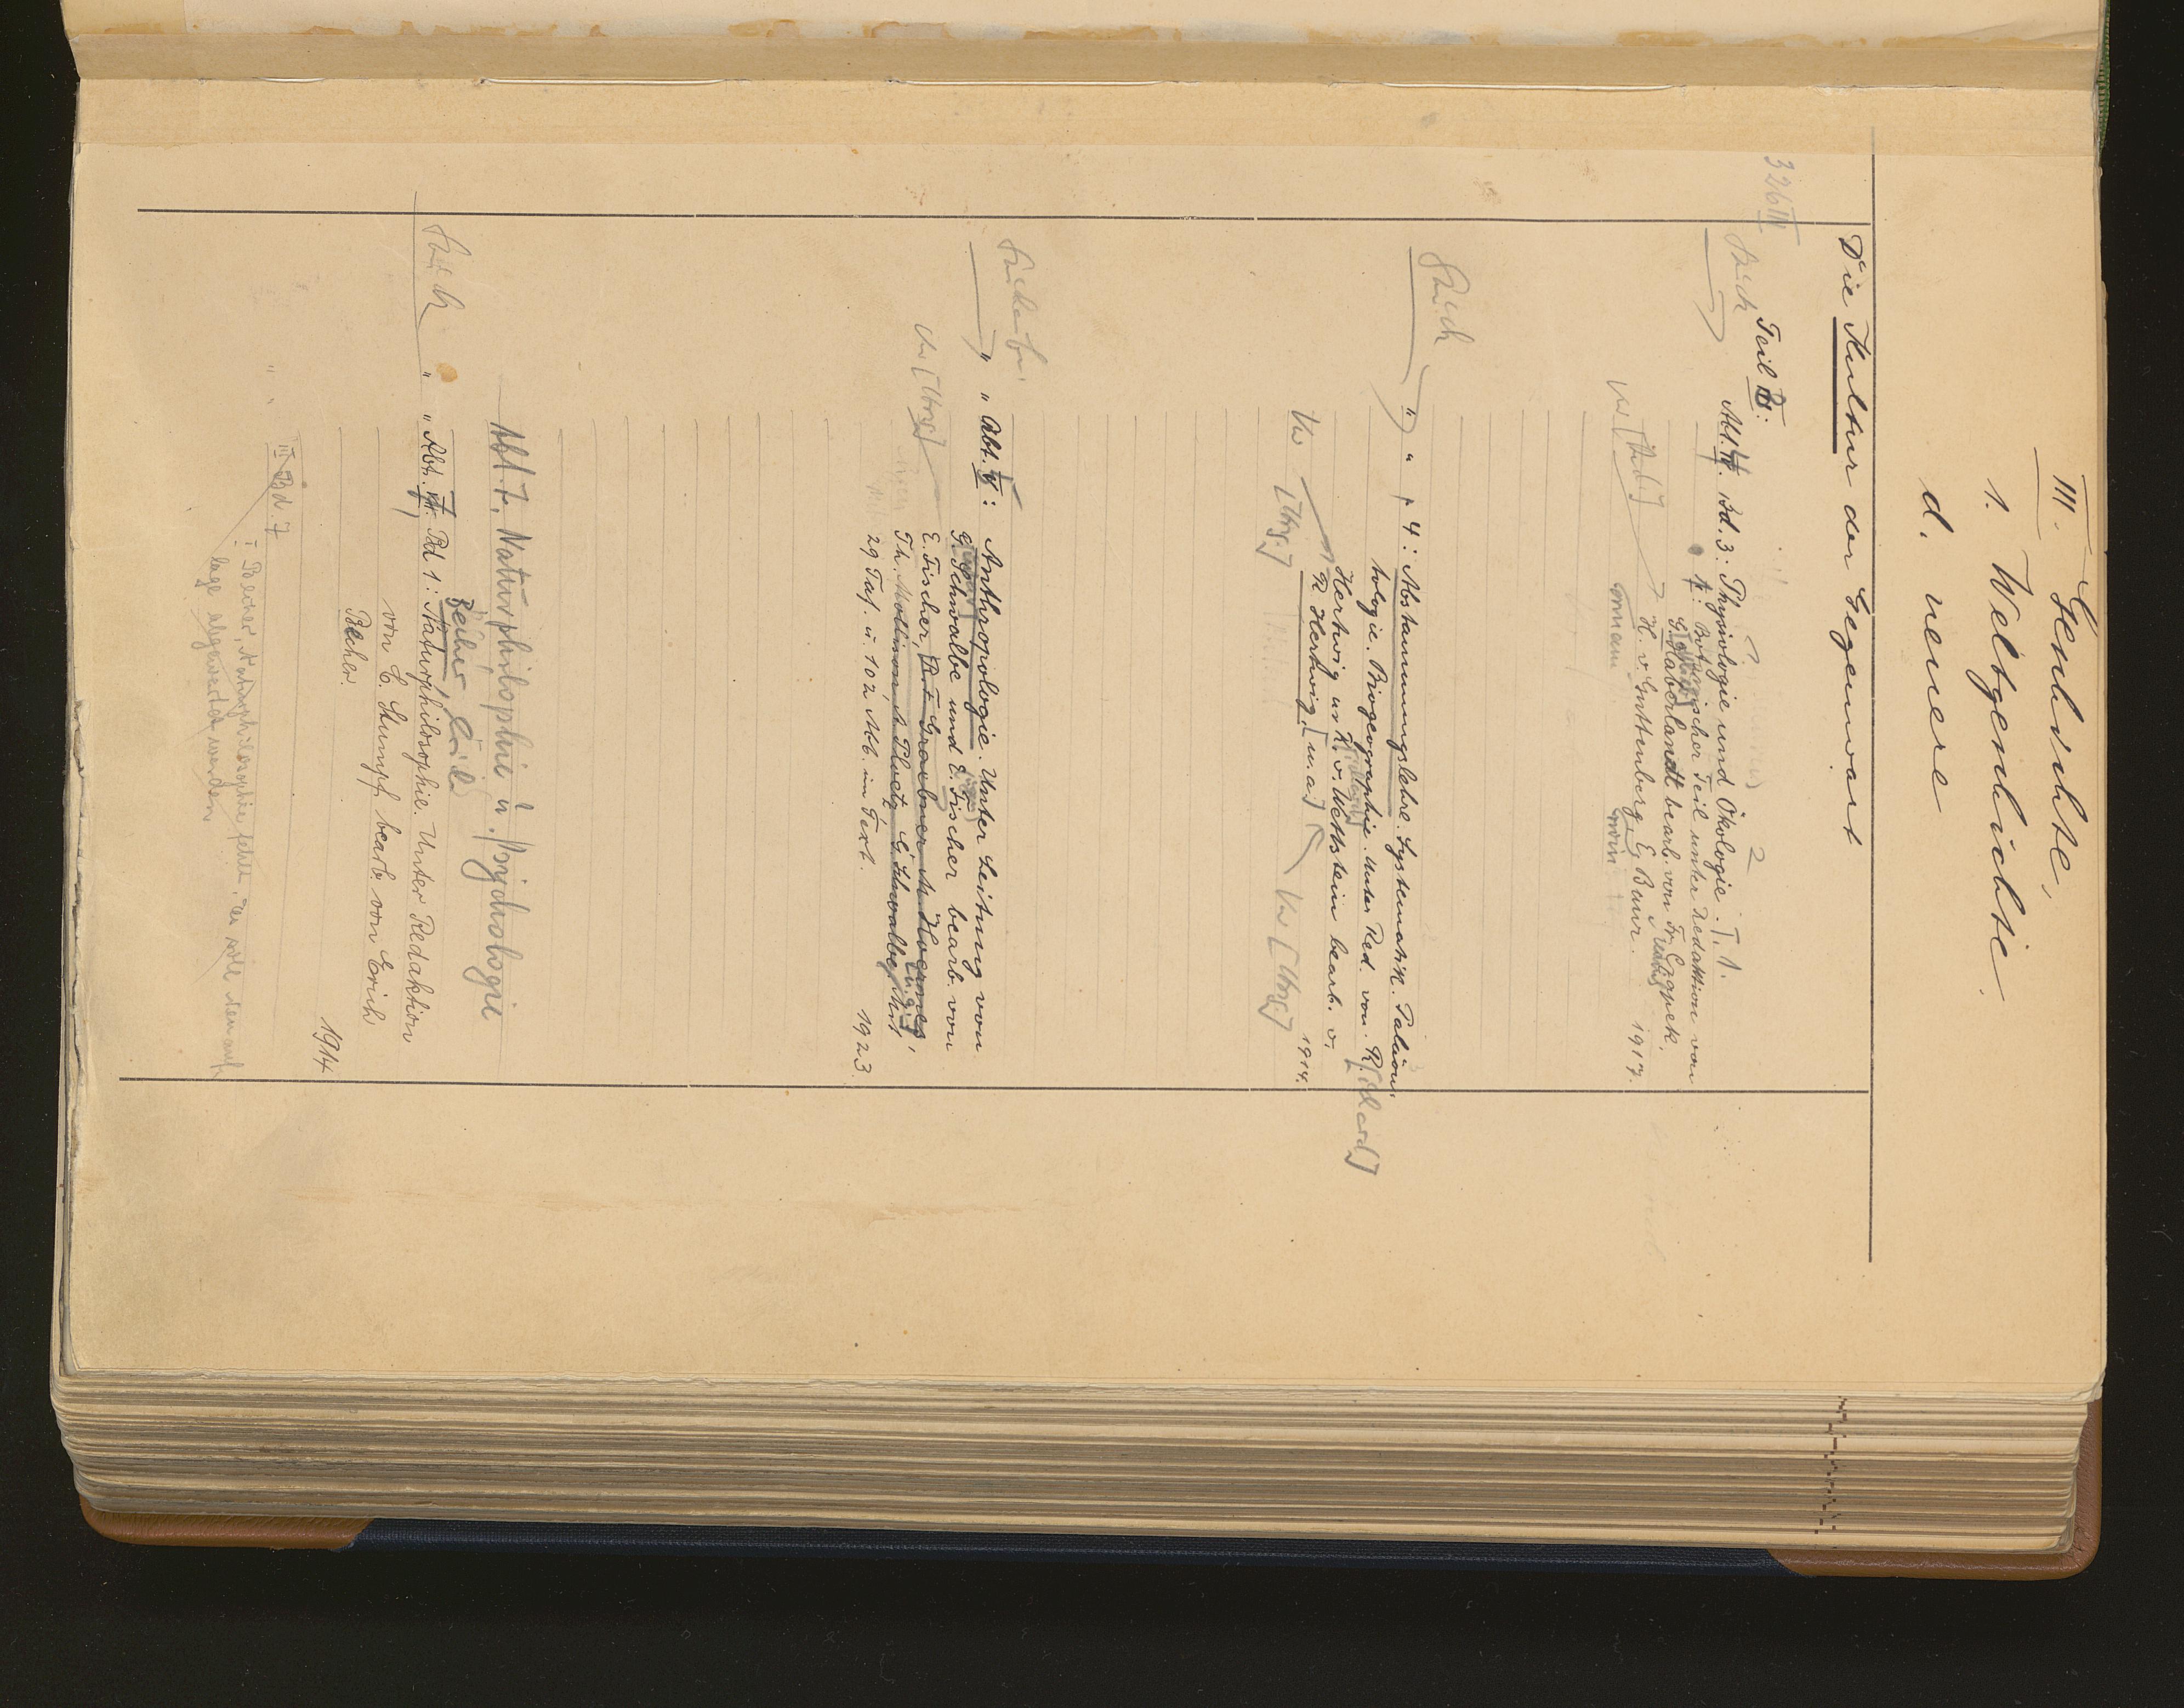 III. Geschichte,
1. Weltgeschichte.
d. neuere
Die Kultur der Gegenwart
326 IV
Teil III:
Abt. IV. Bd. 3: Physiologie und Ökologie. T. 1.
1: Botanischer Teil unter Redaktion von
G. Haberlandt bearb. von Fr. Czapek,
H. v. Guttenberg, E. Baur. 1917.
" " " 4: Abstammungslehre. Systematik. Paläon-
tologie. Biogeographie. Unter Red. von R.
Hertwig u. R. v. Wettstein bearb. v.
R. Hertwig, [u. a.] 1914.
" " Abt. V: Anthropologie. Unter Leitung von
G. Schwalbe und E. Fischer bearb. von
E. Fischer, R. F. Graebner M. Hoernes,
Th. Mollison, A. Ploetz, G. Schwalbe
29 Taf. u. 102 Abb. im Text. 1923
Abt. 7. Naturphilosophie u. Psychologie
Becher, Erich
" " Abt. VII. Bd 1: Naturphilosophie. Unter Redaktion
von C. Stumpf bearb. von Erich
Becher. 1914
" " III Bd. 7: Becher, Naturphilosophie fehlt,